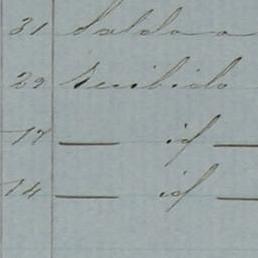 31 Saldo a
29 Recibido
17 — id —
14 — id —